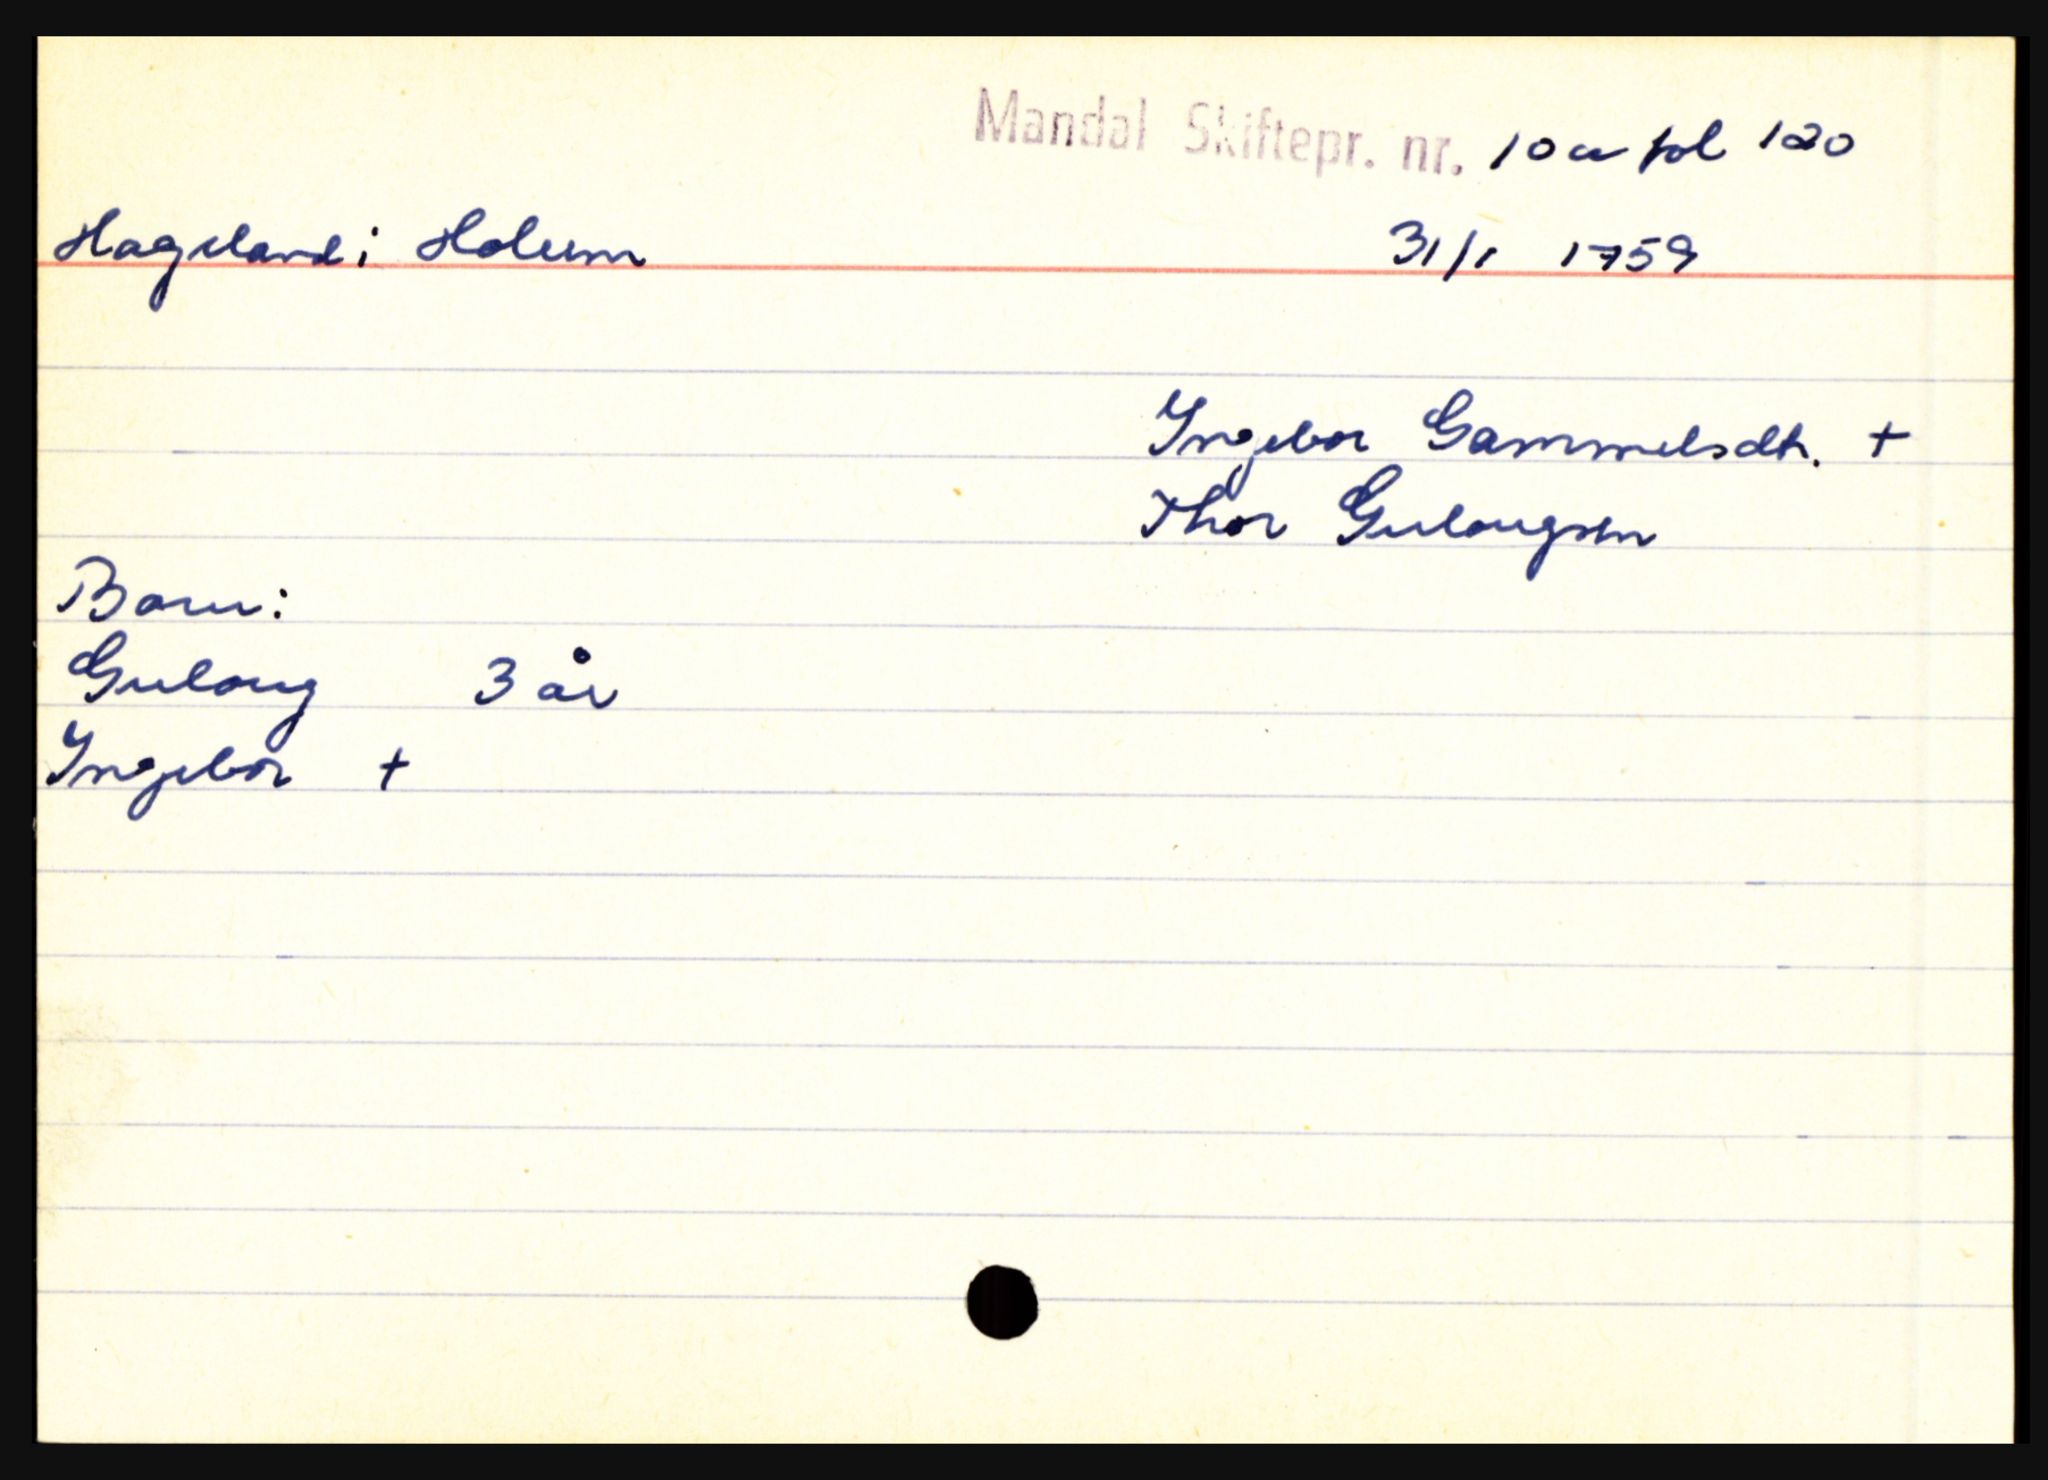 Mandal Skiftepr. nr. 10 a fol 120
Hageland i Holum 31/1 1759
Ingebor Gammelsdtr. +
Thor Gulougsen
Barn:
Guloug 3 år
Ingebor +